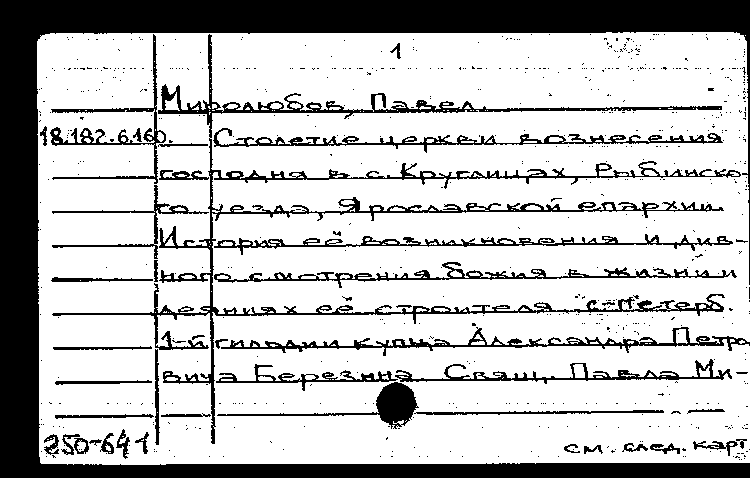 1
Миролюбов, Павел.
18.182.6.160. Столетие церкви вознесения
господня в с. Круглицах, Рыбинско-
го уезда, Ярославской епархии.
История её возникновения и див-
ного смотрения божия в жизни и
деяниях её строителя с-Петерб.
1-й гильдии купца Александра Петро
вича Березина. Свящ. Павла Ми-
250-641
см. след. карт